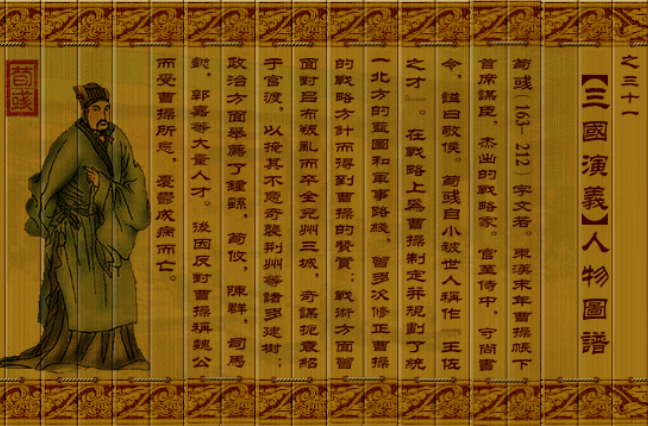 之三十一
【三國演義】人物圖譜
荀彧（163-212）字文若。東漢末年曹操帳下
首席謀臣，杰出的戰略家。官至侍中，守尚書
令，謚曰敬侯。荀彧自小被世人稱作『王佐
之才』。在戰略上爲曹操制定并規劃了統
一北方的藍圖和軍事路綫，曾多次修正曹操
的戰略方針而得到曹操的贊賞；戰術方面曾
面對吕布叛亂而卒全兖州三城，奇謀扼袁紹
于官渡，以掩其不意奇襲荆州等諸多建樹；
政治方面舉薦了鐘繇，荀攸，陳群，司馬
懿，郭嘉等大量人才。後因反對曹操稱魏公
而受曹操所忌，憂鬱成病而亡。
荀彧